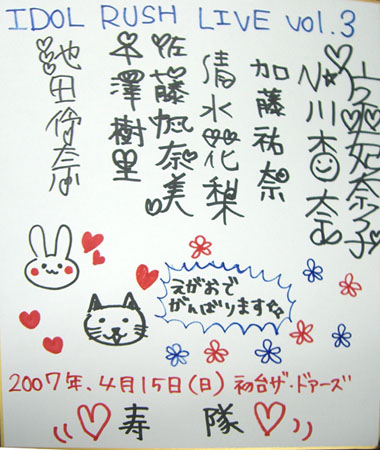 IDOL RUSH LIVE vol.3
妃奈子
加藤祐奈
清水花梨
佐藤加奈美
平澤樹里
池田倫奈
えがおで
がんばります
2007年、4月15日(日) 初台ザ・ドアーズ
寿 隊